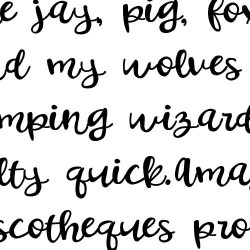 e jay, pig, fox
d my wolves
mping wizard
lty quick.Ama
scotheques pro